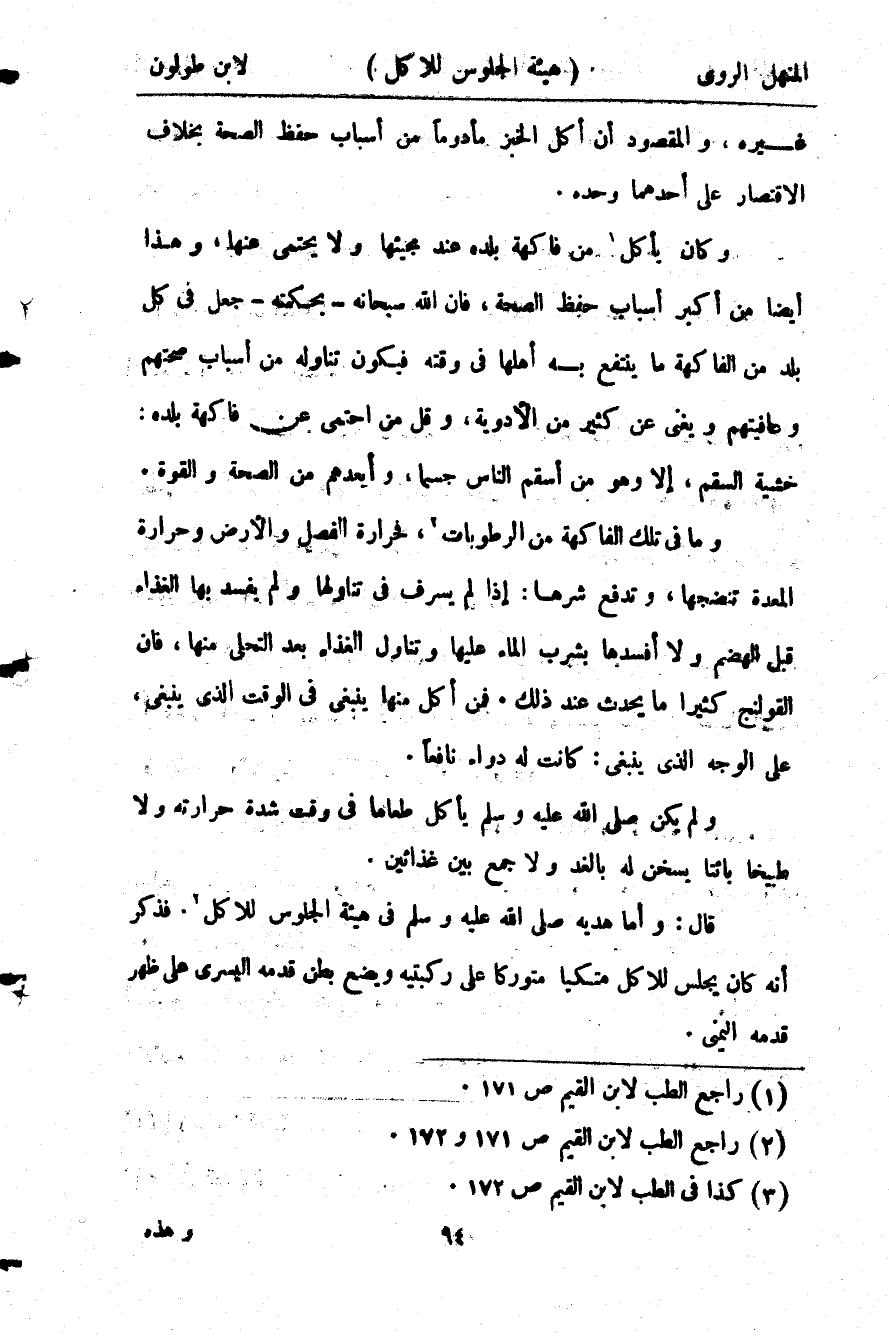 المنهل الروى ( هيئة الجلوس للاكل ) لابن طولون
غـــيره ، و المقصود أن أكل الخبز مأدوماً من أسباب حفظ الصحة بخلاف
الاقتصار على أحدهما وحده .
و كان يأكل١ من فاكهة بلده عند مجيئها و لا يحتمى عنها ، و هـذا
أيضا من أكبر أسباب حفظ الصحة ، فان الله سبحانه - بحكمته - جعل فى كل
بلد من الفاكهة ما ينتفع بـــه أهلها فى وقته فيكون تناوله من أسباب صحتهم
و عافيتهم و يغنى عن كثير من الأدوية ، و قل من احتمى عن فاكهة بلده :
خشية السقم ، إلا وهو من أسقم الناس جسما ، و أبعدهم من الصحة و القوة .
و ما فى تلك الفاكهة من الرطوبات٢ ، فحرارة الفصل و الأرض و حرارة
المعدة تنضجها ، و تدفع شرهـا : إذا لم يسرف فى تناولها و لم يفسد بها الغذاء
قبل الهضم و لا أفسدها بشرب الماء عليها و تناول الغذاء بعد التحلى منها ، فان
القولنج كثيرا ما يحدث عند ذلك . فمن أكل منها ينبغى فى الوقت الذى ينبغى ،
على الوجه الذى ينبغى : كانت له دواء نافعاً .
و لم يكن صلى الله عليه و سلم يأكل طعاما فى وقت شدة حرارته و لا
طبيخا بائتا يسخن له بالغد و لا جمع بين غذائين .
قال : و أما هديه صلى الله عليه و سلم فى هيئة الجلوس للاكل٣ . فذكر
أنه كان يجلس للاكل متكبا متوركا على ركبتيه ويضع بطن قدمه اليسرى على ظهر
قدمه اليمنى .
(١) راجع الطب لابن القيم ص ١٧١ .
(٢) راجع الطب لابن القيم ص ١٧١ و ١٧٢ .
(٣) كذا فى الطب لابن القيم ص ١٧٢ .
٩٤ و هذه